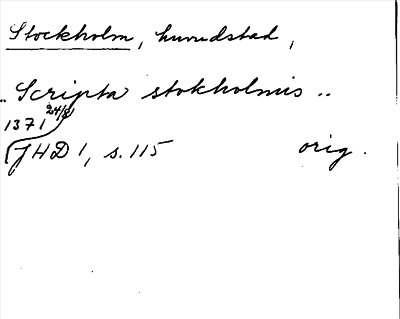 Stockholm, huvudstad,
.. Scripta stokholmis ..
1371 24/8
JHD 1, s. 115 orig.